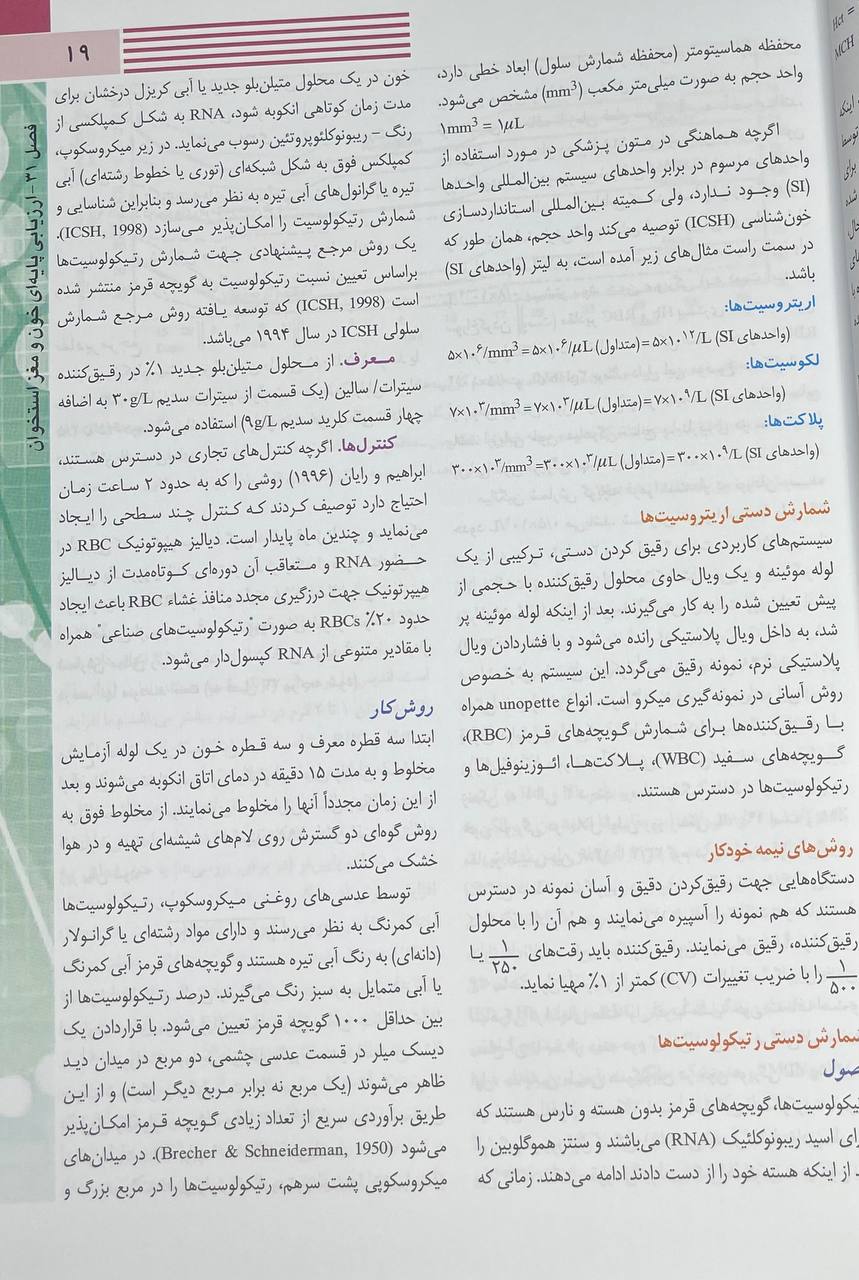 ۱۹
فصل ۳۱ - ارزیابی پایه‌ای خون و مغز استخوان
Hct =
MCH
محفظه هماسیتومتر (محفظه شمارش سلول) ابعاد خطی دارد،
واحد حجم به صورت میلی‌متر مکعب (mm³) مشخص می‌شود.
۱mm³ = ۱µL
اگرچه هماهنگی در متون پزشکی در مورد استفاده از
واحدهای مرسوم در برابر واحدهای سیستم بین‌المللی واحدها
(SI) وجود ندارد، ولی کمیته بین‌المللی استانداردسازی
خون‌شناسی (ICSH) توصیه می‌کند واحد حجم، همان طور که
در سمت راست مثال‌های زیر آمده است، به لیتر (واحدهای SI)
باشد.
اریتروسیت‌ها:
۵×۱۰⁶/mm³ = ۵×۱۰⁶/µL (متداول) = ۵×۱۰¹²/L (واحدهای SI)
لکوسیت‌ها:
۷×۱۰³/mm³ = ۷×۱۰³/µL (متداول) = ۷×۱۰⁹/L (واحدهای SI)
پلاکت‌ها:
۳۰۰×۱۰³/mm³ = ۳۰۰×۱۰³/µL (متداول) = ۳۰۰×۱۰⁹/L (واحدهای SI)
شمارش دستی اریتروسیت‌ها
سیستم‌های کاربردی برای رقیق کردن دستی، ترکیبی از یک
لوله موئینه و یک ویال حاوی محلول رقیق‌کننده با حجمی از
پیش تعیین شده را به کار می‌گیرند. بعد از اینکه لوله موئینه پر
شد، به داخل ویال پلاستیکی رانده می‌شود و با فشاردادن ویال
پلاستیکی نرم، نمونه رقیق می‌گردد. این سیستم به خصوص
روش آسانی در نمونه‌گیری میکرو است. انواع unopette همراه
با رقیق‌کننده‌ها برای شمارش گویچه‌های قرمز (RBC)،
گویچه‌های سفید (WBC)، پلاکت‌ها، ائوزینوفیل‌ها و
رتیکولوسیت‌ها در دسترس هستند.
روش‌های نیمه خودکار
دستگاه‌هایی جهت رقیق‌کردن دقیق و آسان نمونه در دسترس
هستند که هم نمونه را آسپیره می‌نمایند و هم آن را با محلول
رقیق‌کننده، رقیق می‌نمایند. رقیق‌کننده باید رقت‌های ۱/۲۵۰ یا
۱/۵۰۰ را با ضریب تغییرات (CV) کمتر از ۱٪ مهیا نماید.
شمارش دستی رتیکولوسیت‌ها
صول
یکولوسیت‌ها، گویچه‌های قرمز بدون هسته و نارس هستند که
رای اسید ریبونوکلئیک (RNA) می‌باشند و سنتز هموگلوبین را
از اینکه هسته خود را از دست دادند ادامه می‌دهند. زمانی که
خون در یک محلول متیلن‌بلو جدید یا آبی کریزل درخشان برای
مدت زمان کوتاهی انکوبه شود، RNA به شکل کمپلکسی از
رنگ - ریبونوکلئوپروتئین رسوب می‌نماید. در زیر میکروسکوپ،
کمپلکس فوق به شکل شبکه‌ای (توری یا خطوط رشته‌ای) آبی
تیره یا گرانول‌های آبی تیره به نظر می‌رسد و بنابراین شناسایی و
شمارش رتیکولوسیت را امکان‌پذیر می‌سازد (ICSH, 1998).
یک روش مرجع پیشنهادی جهت شمارش رتیکولوسیت‌ها
براساس تعیین نسبت رتیکولوسیت به گویچه قرمز منتشر شده
است (ICSH, 1998) که توسعه یافته روش مرجع شمارش
سلولی ICSH در سال ۱۹۹۴ می‌باشد.
معرف. از محلول متیلن‌بلو جدید ۱٪ در رقیق‌کننده
سیترات/ سالین (یک قسمت از سیترات سدیم ۳۰g/L به اضافه
چهار قسمت کلرید سدیم ۹g/L) استفاده می‌شود.
کنترل‌ها. اگرچه کنترل‌های تجاری در دسترس هستند،
ابراهیم و رایان (۱۹۹۶) روشی را که به حدود ۲ ساعت زمان
احتیاج دارد توصیف کردند که کنترل چند سطحی را ایجاد
می‌نماید و چندین ماه پایدار است. دیالیز هیپوتونیک RBC در
حضور RNA و متعاقب آن دوره‌ای کوتاه‌مدت از دیالیز
هیپرتونیک جهت درزگیری مجدد منافذ غشاء RBC باعث ایجاد
حدود ۲۰٪ RBCs به صورت "رتیکولوسیت‌های صناعی" همراه
با مقادیر متنوعی از RNA کپسول‌دار می‌شود.
روش کار
ابتدا سه قطره معرف و سه قطره خون در یک لوله آزمایش
مخلوط و به مدت ۱۵ دقیقه در دمای اتاق انکوبه می‌شوند و بعد
از این زمان مجدداً آنها را مخلوط می‌نمایند. از مخلوط فوق به
روش گوه‌ای دو گسترش روی لام‌های شیشه‌ای تهیه و در هوا
خشک می‌کنند.
توسط عدسی‌های روغنی میکروسکوپ، رتیکولوسیت‌ها
آبی کمرنگ به نظر می‌رسند و دارای مواد رشته‌ای یا گرانولار
(دانه‌ای) به رنگ آبی تیره هستند و گویچه‌های قرمز آبی کمرنگ
یا آبی متمایل به سبز رنگ می‌گیرند. درصد رتیکولوسیت‌ها از
بین حداقل ۱۰۰۰ گویچه قرمز تعیین می‌شود. با قراردادن یک
دیسک میلر در قسمت عدسی چشمی، دو مربع در میدان دید
ظاهر می‌شوند (یک مربع نه برابر مربع دیگر است) و از این
طریق برآوردی سریع از تعداد زیادی گویچه قرمز امکان‌پذیر
می‌شود (Brecher & Schneiderman, 1950). در میدان‌های
میکروسکوپی پشت سرهم، رتیکولوسیت‌ها را در مربع بزرگ و